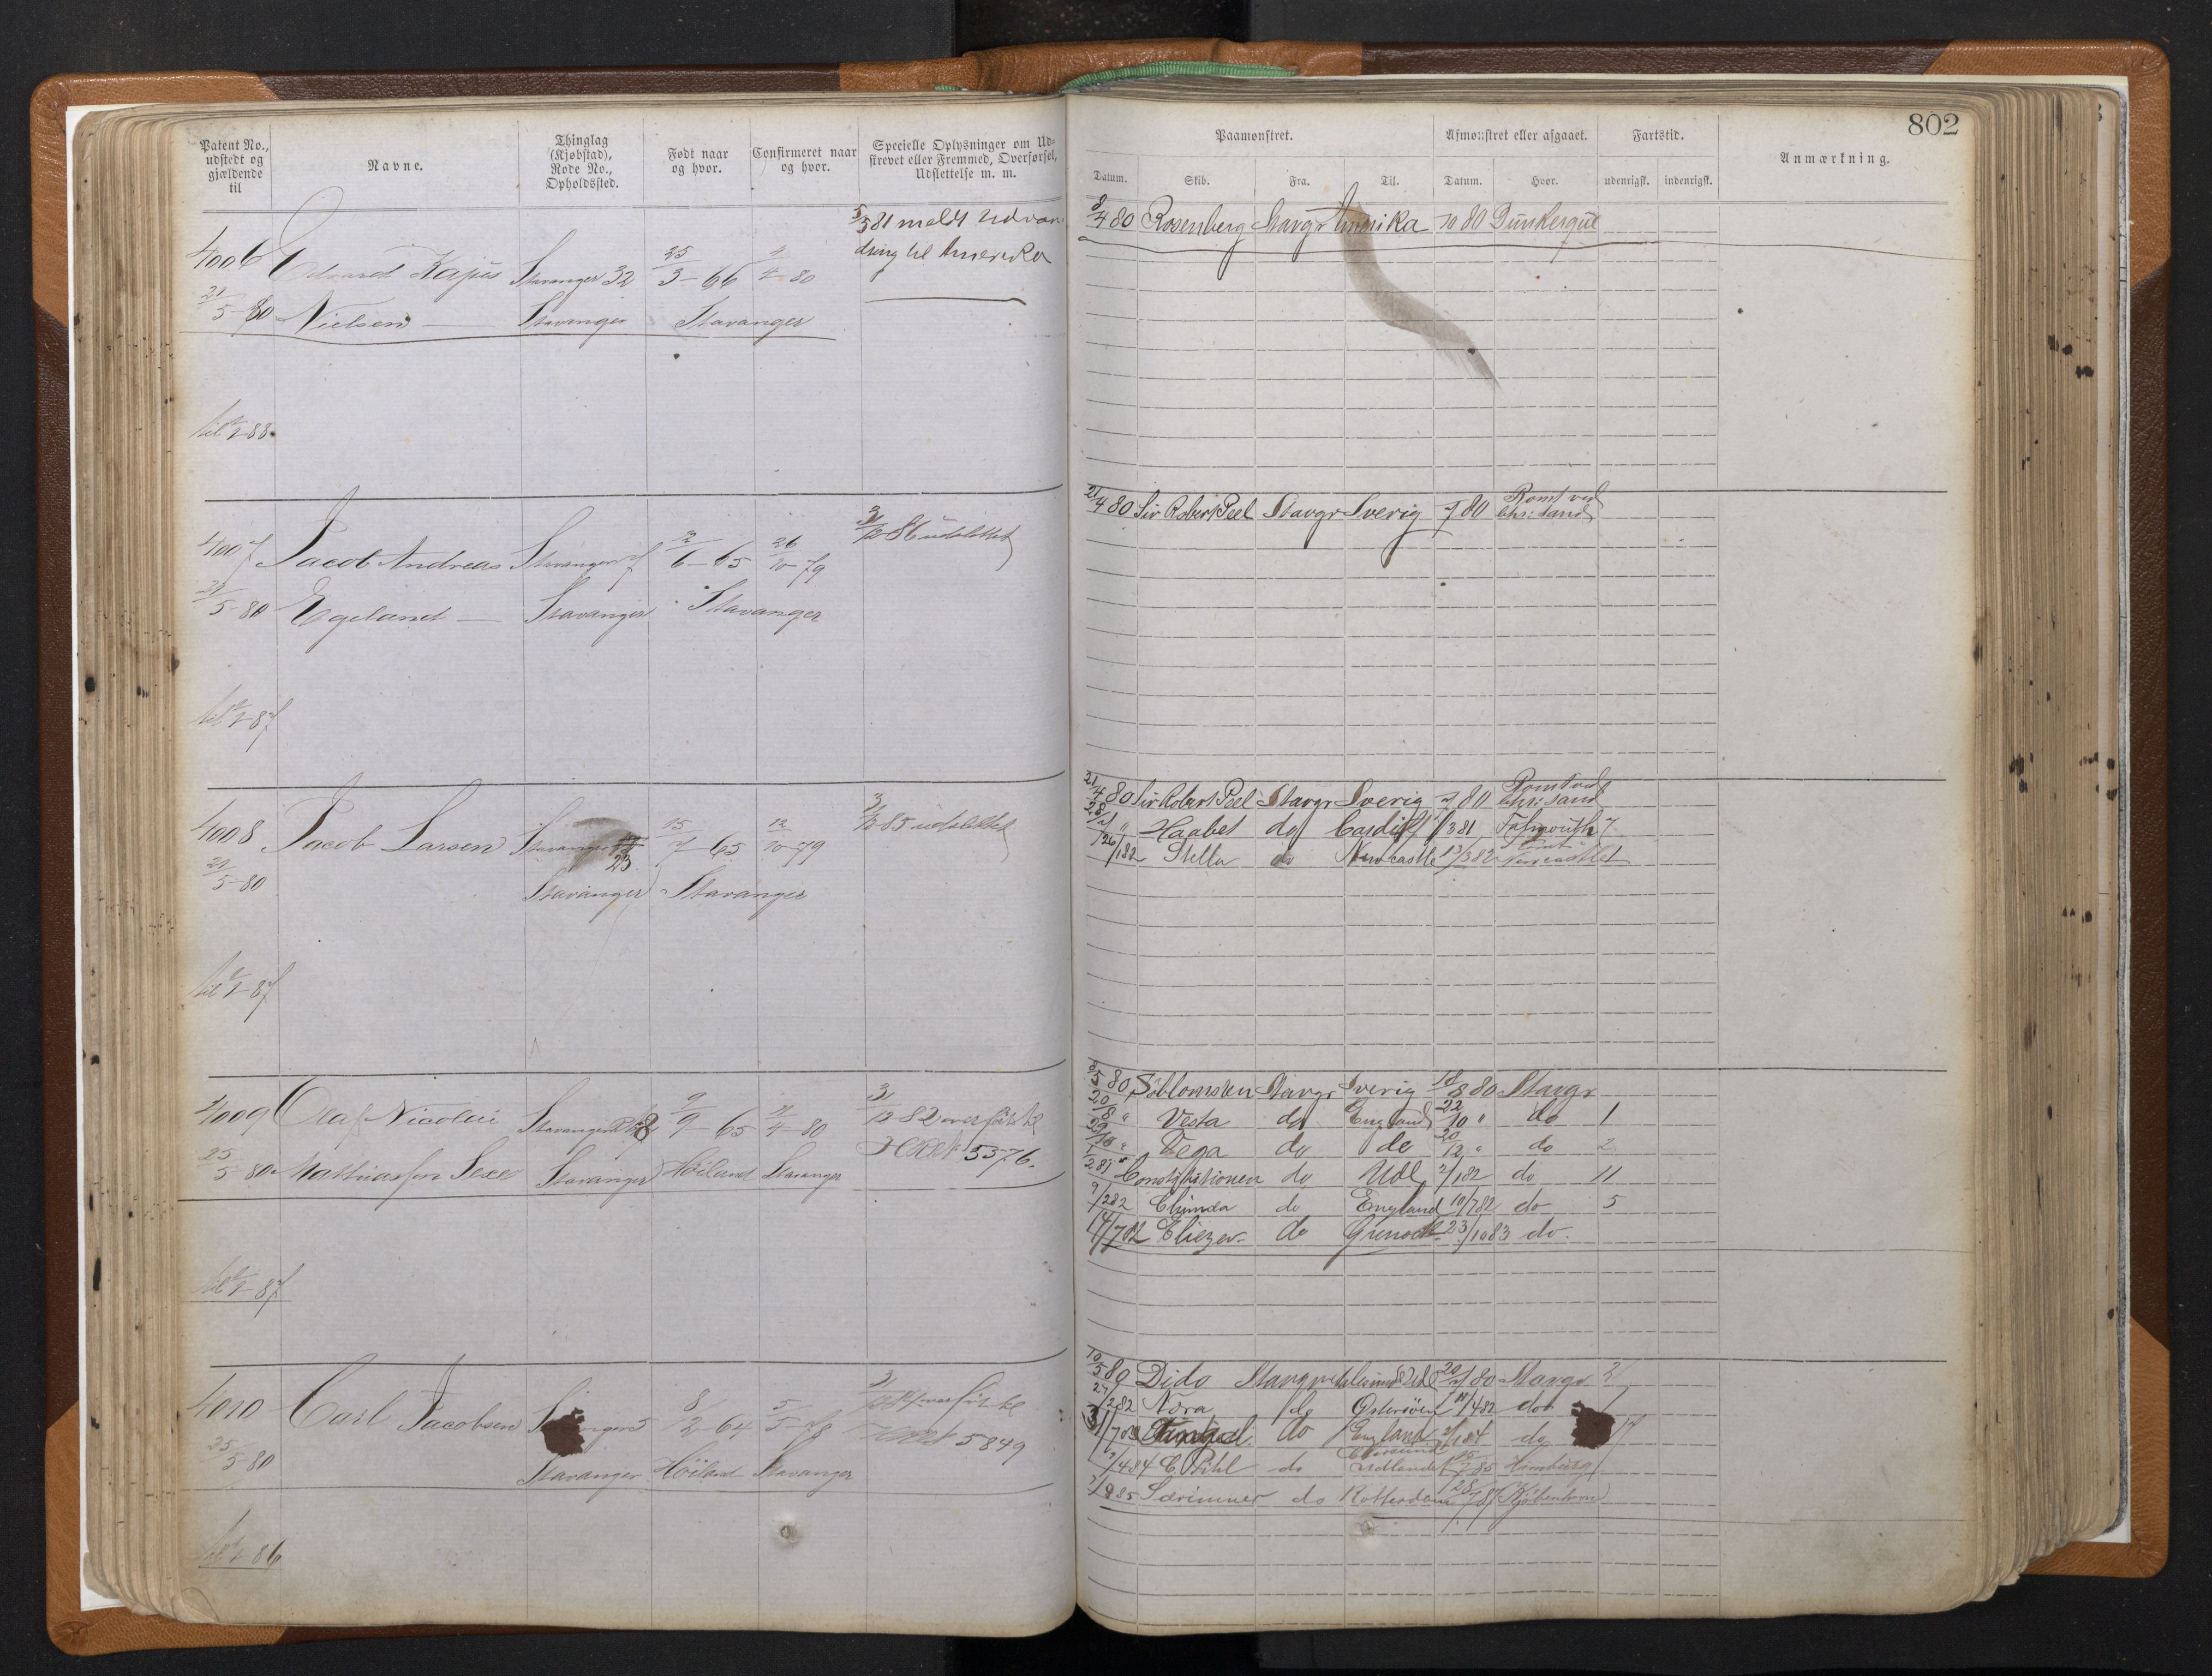 802
Patent No., udstedt og gjældende til
Navne.
Thinglag (Kjøbstad), Rode No., Opholdssted.
Født naar og hvor.
Confirmeret naar og hvor.
Specielle Oplysninger om Udskrevet eller Fremmed, Overførsel, Udslettelse m. m.
Paamønstret.
Afmønstret eller afgaaet.
Fartstid.
Anmærkning.
Datum. Skib. Fra. Til. Datum. Hvor. udenrigsk. indenrigsk.
5/5 81 meldt Udvan-
dring til Amerika
4006 Edvard Kajus Stavanger 32 25/3-66 4/4-80
21/5-80 Nielsen Stavanger Stavanger
til 1/1-88
8/4 80 Rosenberg Stavgr Amerika /10 80 Dünkerque
4007 Jacob Andreas Stavanger 7 2/6-65 26/10-79
31/12 86 udslettet
21/5-80 Egeland Stavanger Stavanger
til 1/1-87
21/4 80 Sir Robert Peel Stavgr Sverig /7 80 Rømt ved Chr:sand
4008 Jacob Larsen Stavanger 23 15/7-65 12/10-79
31/12 85 udslettet
21/5-80 Stavanger Stavanger
til 1/1-87
21/4 80 Sir Robert Peel Stavgr Sverig /7 80 Rømt ved Chr:sand
28/7 " Haabet do Cardiff /3 81 Falmouth 7
26/1 82 Stella do Newcastle 13/3 82 Newcastle
4009 Olaf Nicolai Stavanger 9/9-65 4/4-80
31/12 82 overført til
Hoved 3376.
25/5-80 Mathiassen Sexe Stavanger Høiland Stavanger
til 1/1-87
/5 80 Søblomsten Stavgr Sverig 18/8 80 Stavgr
20/8 " Vesta do England 22/10 " do 1
29/10 " Vega do do 20/12 " do 2
/2 81 Constitutionen do Udl 2/1 82 do 11
9/2 82 Chimda do England 10/7 82 do 5
14/7 82 Eliezer do Grenock 23/10 83 do.
4010 Carl Jacobsen Stavanger 5 8/2-64 5/5-78
overført til
5849
25/5-80 Stavanger Høiland Stavanger
til 1/1 86
10/5 80 Dido Stavgr Udl 20/7 80 Stavgr 2
27/2 82 Nora do Østersøen 14/4 82 do 1
do England /1 84 do 17
/4 84 C. Pihl do Udlandet /7 85 Hamburg
/9 85 Særimner do Rotterdam 28/7 87 Kjøbenhavn